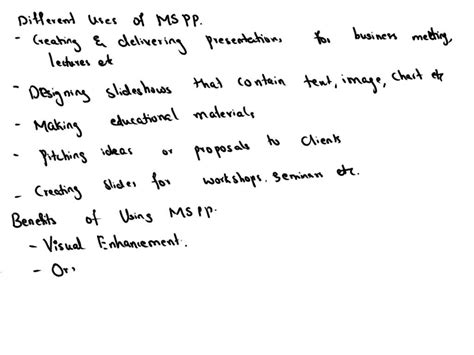 Different Uses of MS PP.
- Creating & delivering presentations for business meeting,
lectures etc
- Designing slideshows that contain text, image, chart etc
- Making educational materials
- Pitching ideas or proposals to clients
- Creating slides for workshops, seminars etc.
Benefits of Using MS PP.
- Visual Enhancement.
- Or